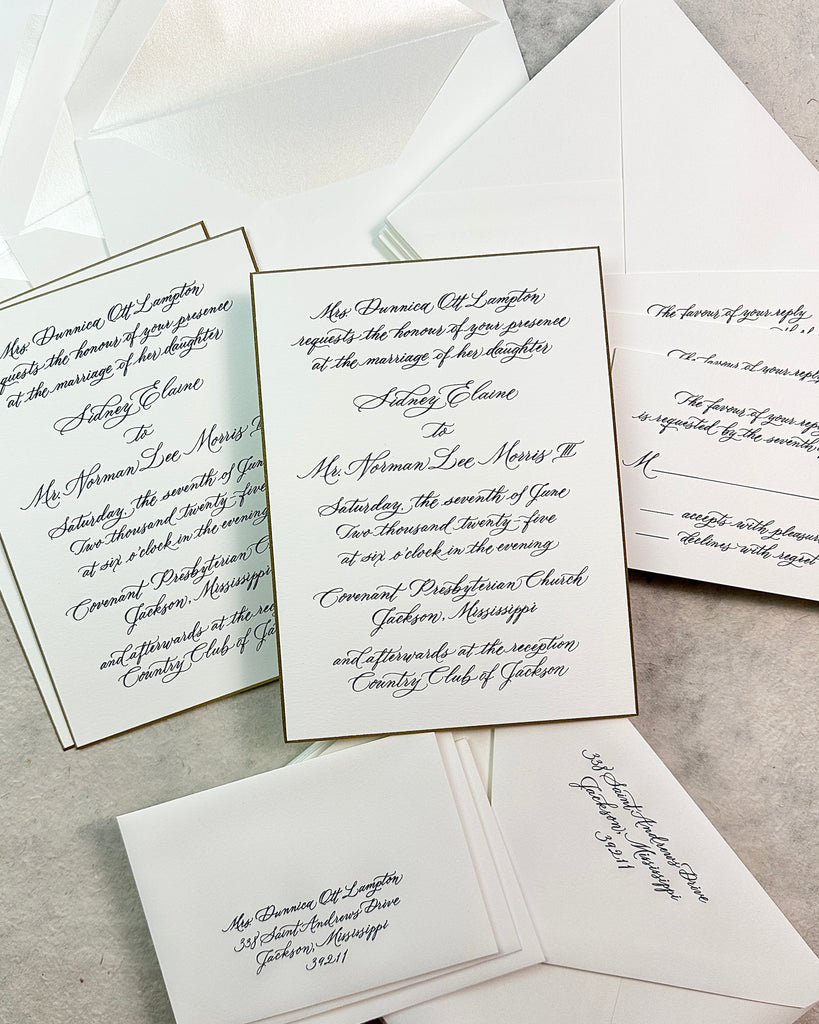 Mrs. Dunnica Ott Lampton
requests the honour of your presence
at the marriage of her daughter
Sidney Elaine
to
Mr. Norman Lee Morris III
Saturday, the seventh of June
Two thousand twenty-five
at six o'clock in the evening
Covenant Presbyterian Church
Jackson, Mississippi
and afterwards at the reception
Country Club of Jackson
Mrs. Dunnica Ott Lampton
quests the honour of your presence
at the marriage of her daughter
Sidney Elaine
to
Mr. Norman Lee Morris
Saturday, the seventh of June
Two thousand twenty-five
at six o'clock in the evening
Covenant Presbyterian C
Jackson, Mississippi
and afterwards at the rec
Country Club of Ja
The favour of your reply
The favour of your reply
The favour of your reply
is requested by the seventh
M
accepts with pleasure
declines with regret
Mrs. Dunnica Ott Lampton
338 Saint Andrews Drive
Jackson, Mississippi
39211
338 Saint Andrews Drive
Jackson, Mississippi
39211